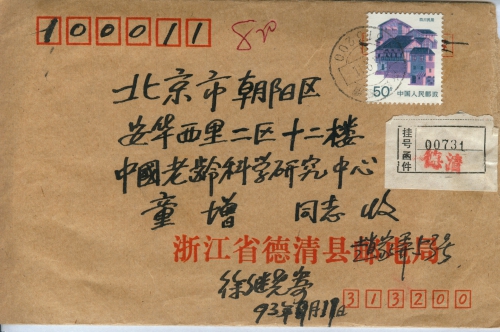 100011
50分 中国人民邮政
北京市朝阳区
安华西里二区十二楼
中國老龄科学研究中心
童增 同志 收
挂号函件
00731
德清
浙江省德清县邮电局
93年
313200